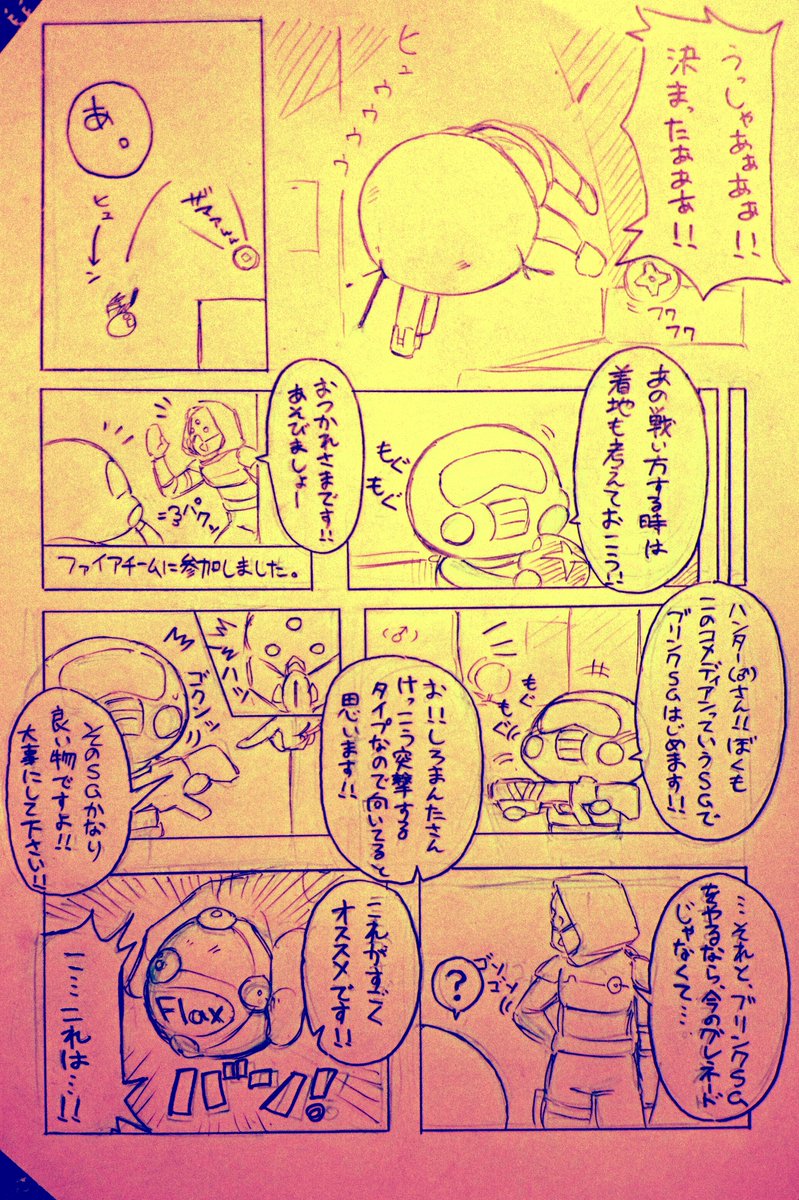 うっしゃあぁあぁ!!
決まったぁあぁあ!!
ヒュゥゥゥゥ
フワ
フワ
あ。
ヒューン
あの戦い方する時は
着地も考えておこう!!
もぐ
もぐ
おつかれさまです!!
あそびましょー
パクッ
ファイアチームに参加しました。
ハンター(♂)さん!!ぼくも
このコメディアンっていうSGで
ブリンクSGはじめます!!
(♂)
もぐ
もぐ
お!!しろまんたさん
けっこう突撃する
タイプなので向いてると
思います!!
ズバッ
ゴクンッ
そのSGかなり
良い物ですよ!!
大事にして下さい!!
…それと、ブリンクSG
をやるなら、今のグレネード
じゃなくて…
?
ゴソ
ゴソ
これがすごく
オススメです!!
Flax
こ…これは…!!